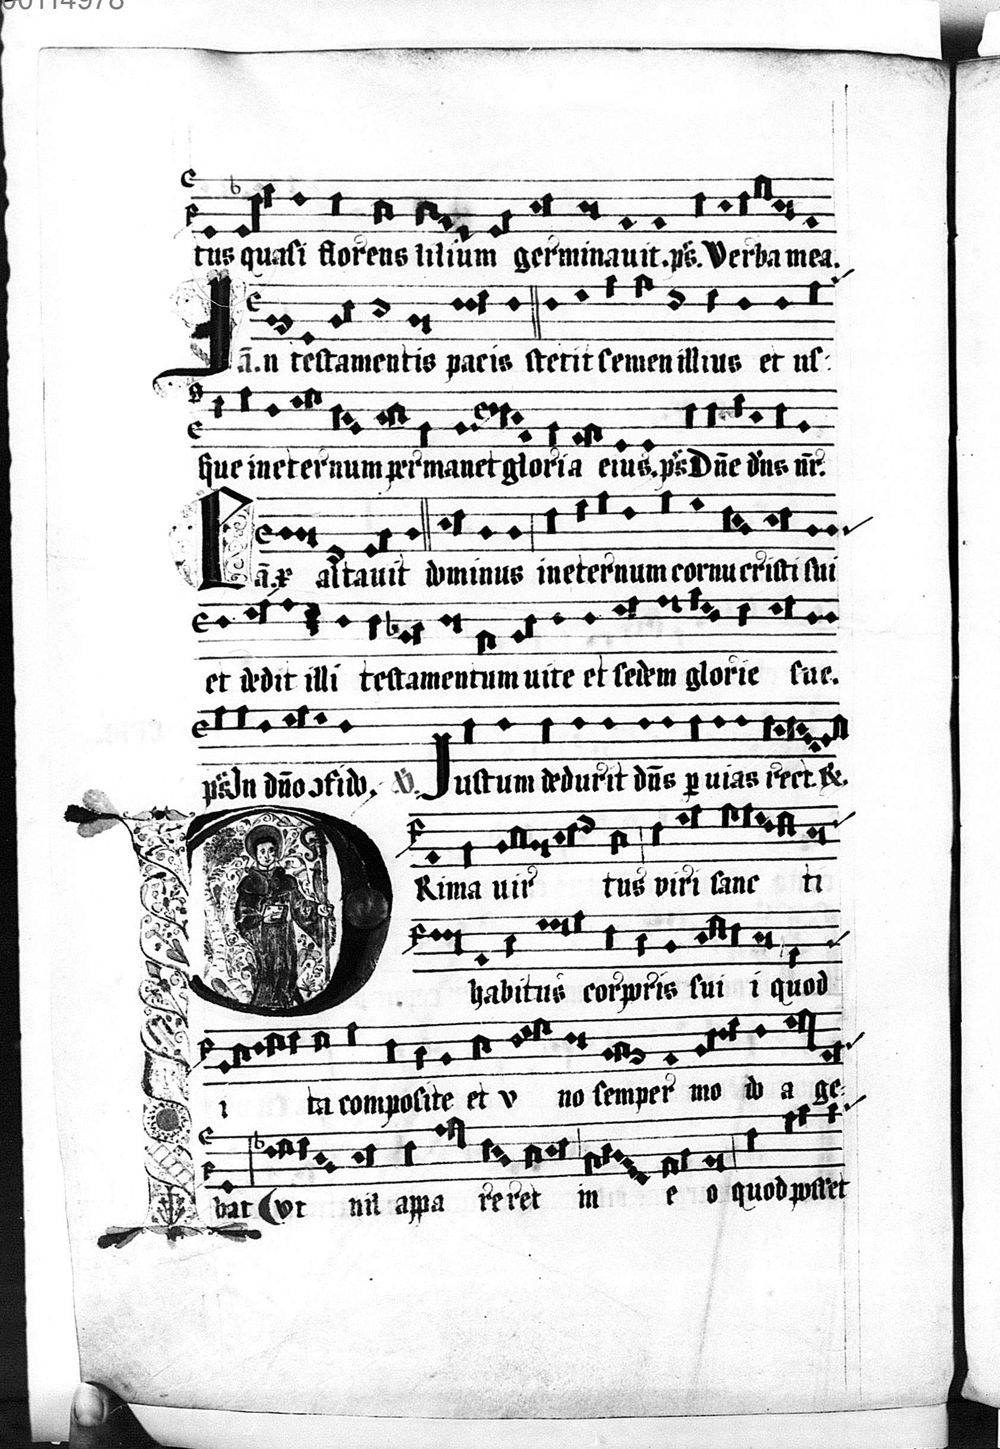 00114978
tus quasi florens lilium germinauit. ps. Verba mea.
ā. In testamentis pacis stetit semen illius et us
que in eternum permanet gloria eius. ps Dn̄e dn̄s nr̄.
ā. Exaltauit dominus in eternum cornu cristi sui
et dedit illi testamentum uite et sedem glorie sue.
ps In dn̄o ɔfido. V. Iustum deduxit dn̄s p uias rect. &.
PRima uir tus viri sanc ti
habitus corporis sui i quod
i ta composite et v no semper mo do a ge
bat Vt nil appa reret in e o quod posset